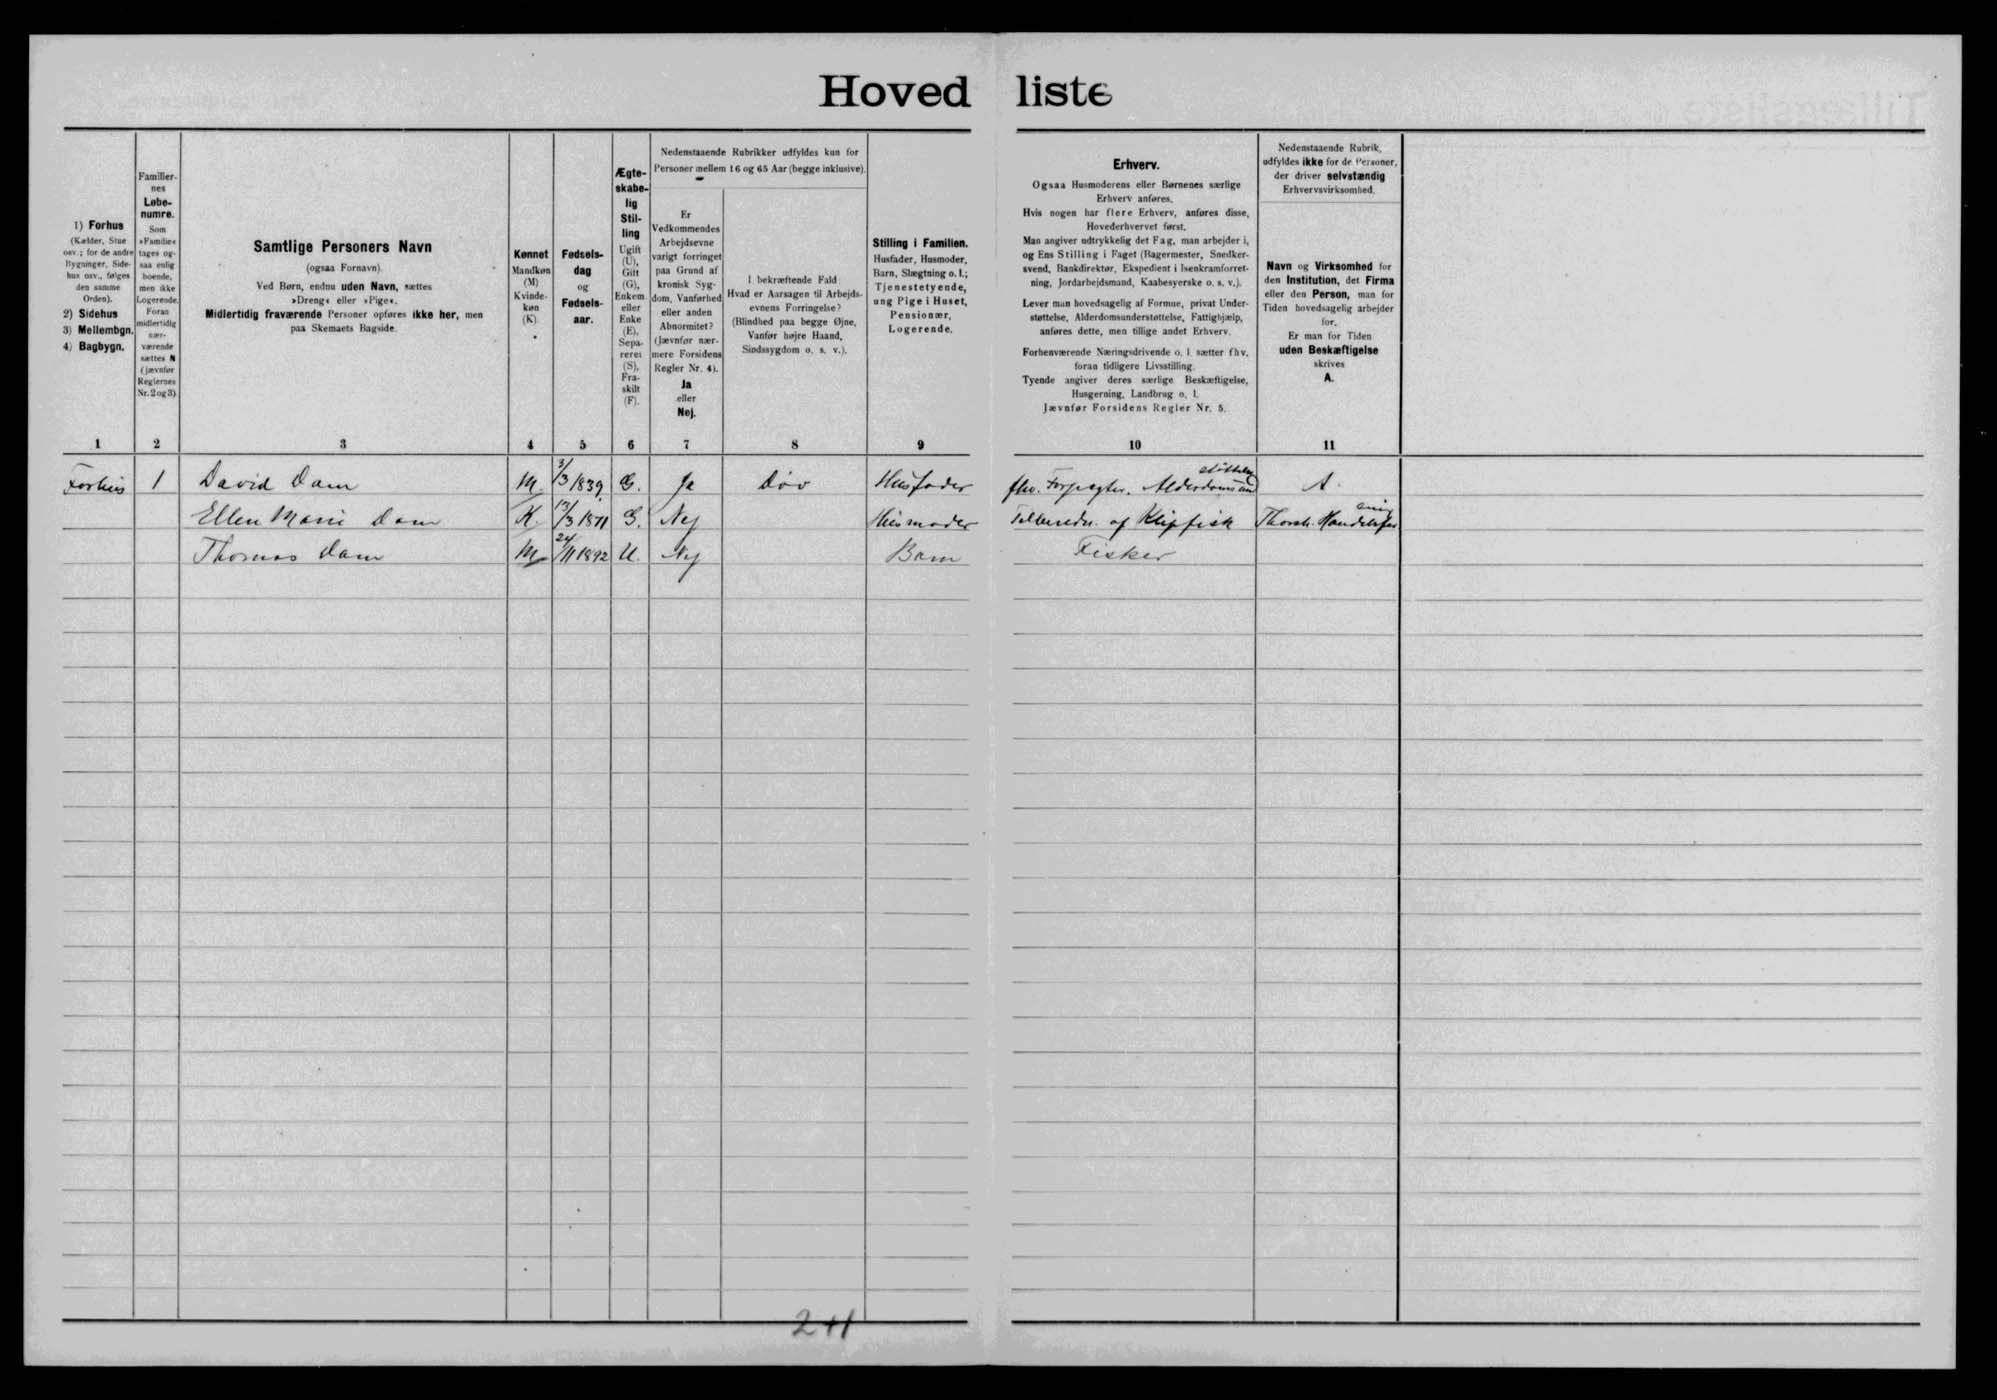 Hovedliste
1) Forhus
(Kælder, Stue
osv.; for de andre
Bygninger, Side-
hus osv., følges
den samme
Orden).
2) Sidehus
3) Mellembgn.
4) Bagbygn.
Familier-
nes
Løbe-
numre.
Som
»Familie«
tages og-
saa enlig
boende,
men ikke
Logerende.
Foran
midlertidig
nær-
værende
sættes N
(jævnfør
Reglernes
Nr. 2 og 3).
Samtlige Personers Navn
(ogsaa Fornavn).
Ved Børn, endnu uden Navn, sættes
»Dreng« eller »Pige«.
Midlertidig fraværende Personer opføres ikke her, men
paa Skemaets Bagside.
Kønnet
Mandkøn
(M)
Kvinde-
køn
(K).
Fødsels-
dag
og
Fødsels-
aar.
Ægte-
skabe-
lig
Stil-
ling
Ugift
(U),
Gift
(G),
Enkem.
eller
Enke
(E),
Sepa-
reret
(S),
Fra-
skilt
(F).
Nedenstaaende Rubrikker udfyldes kun for
Personer mellem 16 og 65 Aar (begge inklusive).
Er
Vedkommendes
Arbejdsevne
varigt forringet
paa Grund af
kronisk Syg-
dom, Vanførhed
eller anden
Abnormitet?
(Jævnfør nær-
mere Forsidens
Regler Nr. 4).
Ja
eller
Nej.
I bekræftende Fald
Hvad er Aarsagen til Arbejds-
evnens Forringelse?
(Blindhed paa begge Øjne,
Vanfør højre Haand,
Sindssygdom o. s. v.).
Stilling i Familien.
Husfader, Husmoder,
Barn, Slægtning o. l.;
Tjenestetyende,
ung Pige i Huset,
Pensionær,
Logerende.
Erhverv.
Ogsaa Husmoderens eller Børnenes særlige
Erhverv anføres.
Hvis nogen har flere Erhverv, anføres disse,
Hovederhvervet først.
Man angiver udtrykkelig det Fag, man arbejder i,
og Ens Stilling i Faget (Bagermester, Snedker-
svend, Bankdirektør, Ekspedient i Isenkramforret-
ning, Jordarbejdsmand, Kaabesyerske o. s. v.).
Lever man hovedsagelig af Formue, privat Under-
støttelse, Alderdomsunderstøttelse, Fattighjælp,
anføres dette, men tillige andet Erhverv.
Forhenværende Næringsdrivende o. l. sætter fhv.
foran tidligere Livsstilling.
Tyende angiver deres særlige Beskæftigelse,
Husgerning, Landbrug o. l.
Jævnfør Forsidens Regler Nr. 5.
Nedenstaaende Rubrik,
udfyldes ikke for de Personer,
der driver selvstændig
Erhvervsvirksomhed.
Navn og Virksomhed for
den Institution, det Firma
eller den Person, man for
Tiden hovedsagelig arbejder
for.
Er man for Tiden
uden Beskæftigelse
skrives
A.
1 2 3 4 5 6 7 8 9 10 11
Forhus 1 David Dam M. 3/3 1839 G. Ja Døv Husfader fhv. Forpagter. Alderdomsund A.
Ellen Marie Dam K. 13/3 1871 G. Nej Husmoder af Klipfisk Thorsh.
Thomas Dam M 24/11 1892 U. Nej Barn Fisker
2+1